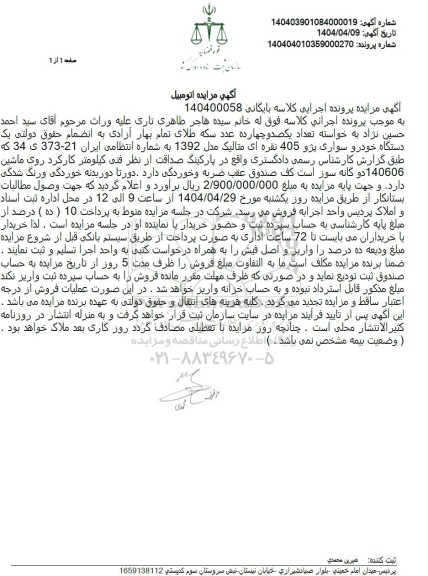 شماره آگهی: 140403901084000019
تاریخ آگهی: 1404/04/09
شماره پرونده: 140404010359000270
قوه قضائیه
صفحه 1 از 1
آگهي مزايده اتومبيل
آگهی مزایده پرونده اجرایی کلاسه بایگانی 140400058
به موجب پرونده اجرائي کلاسه فوق له خانم سیده هاجر طاهری تاری علیه وراث مرحوم آقای سید احمد
حسین نژاد به خواسته تعداد یکصدوچهارده عدد سکه طلای تمام بهار آزادی به انضمام حقوق دولتی یک
دستگاه خودرو سواری پژو 405 نقره ای متالیک مدل 1392 به شماره انتظامی ایران 21-373 ی 34 که
طبق گزارش کارشناس رسمی دادگستری واقع در پارکینگ صداقت از نظر فنی کیلومتر کارکرد روی ماشین
140606دو گانه سوز است کف صندوق عقب ضربه وخوردگی دارد .دورتا دوربدنه خوردگی ورنگ شدگی
دارد. و جهت پایه مزایده به مبلغ 2/900/000/000 ریال برآورد و اعلام گردید که جهت وصول مطالبات
بستانکار از طریق مزایده روز یکشنبه مورخ 1404/04/29 از ساعت 9 الی 12 در محل اداره ثبت اسناد
و املاک پردیس واحد اجرابه فروش می رسد. شرکت در جلسه مزایده منوط به پرداخت 10 ( ده ) درصد از
مبلغ پایه کارشناسی به حساب سپرده ثبت و حضور خریدار یا نماینده او در جلسه مزایده است . لذا خریدار
یا خریداران می بایست تا 72 ساعت اداری به صورت پرداخت از طریق سیستم بانکی قبل از شروع مزایده
مبلغ ودیعه ده درصد را واریز و اصل فیش را به همراه درخواست کتبی به واحد اجرا تسلیم و ثبت نمایند .
ضمنا برنده مزایده مکلف است ما به التفاوت مبلغ فروش را ظرف مدت 5 روز از تاریخ مزایده به حساب
صندوق ثبت تودیع نماید و در صورتی که ظرف مهلت مقرر مانده فروش را به حساب سپرده ثبت واریز نکند
مبلغ مذکور قابل استرداد نبوده و به حساب خزانه واریز خواهد شد . در این صورت عملیات فروش از درجه
اعتبار ساقط و مزایده تجدید می گردد . کلیه هزینه های انتقال و حقوق دولتی به عهده برنده مزایده می باشد .
این آگهی پس از تایید فرآیند مزایده در سایت سازمان ثبت قرار خواهد گرفت و به منزله انتشار در روزنامه
کثیرالانتشار محلی است . چنانچه روز مزایده با تعطیلی مصادف گردد روز کاری بعد ملاک خواهد بود .
( وضعیت بیمه مشخص نمی باشد. )
۰۲۱-۸۸۳۴۹۶۷۰-۵
ثبت کننده: شیرین محمدی
پردیس-میدان امام خمینی -بلوار صیادشیرازی -خیابان نیستان-نبش سروستان سوم کدپستی 1659138112